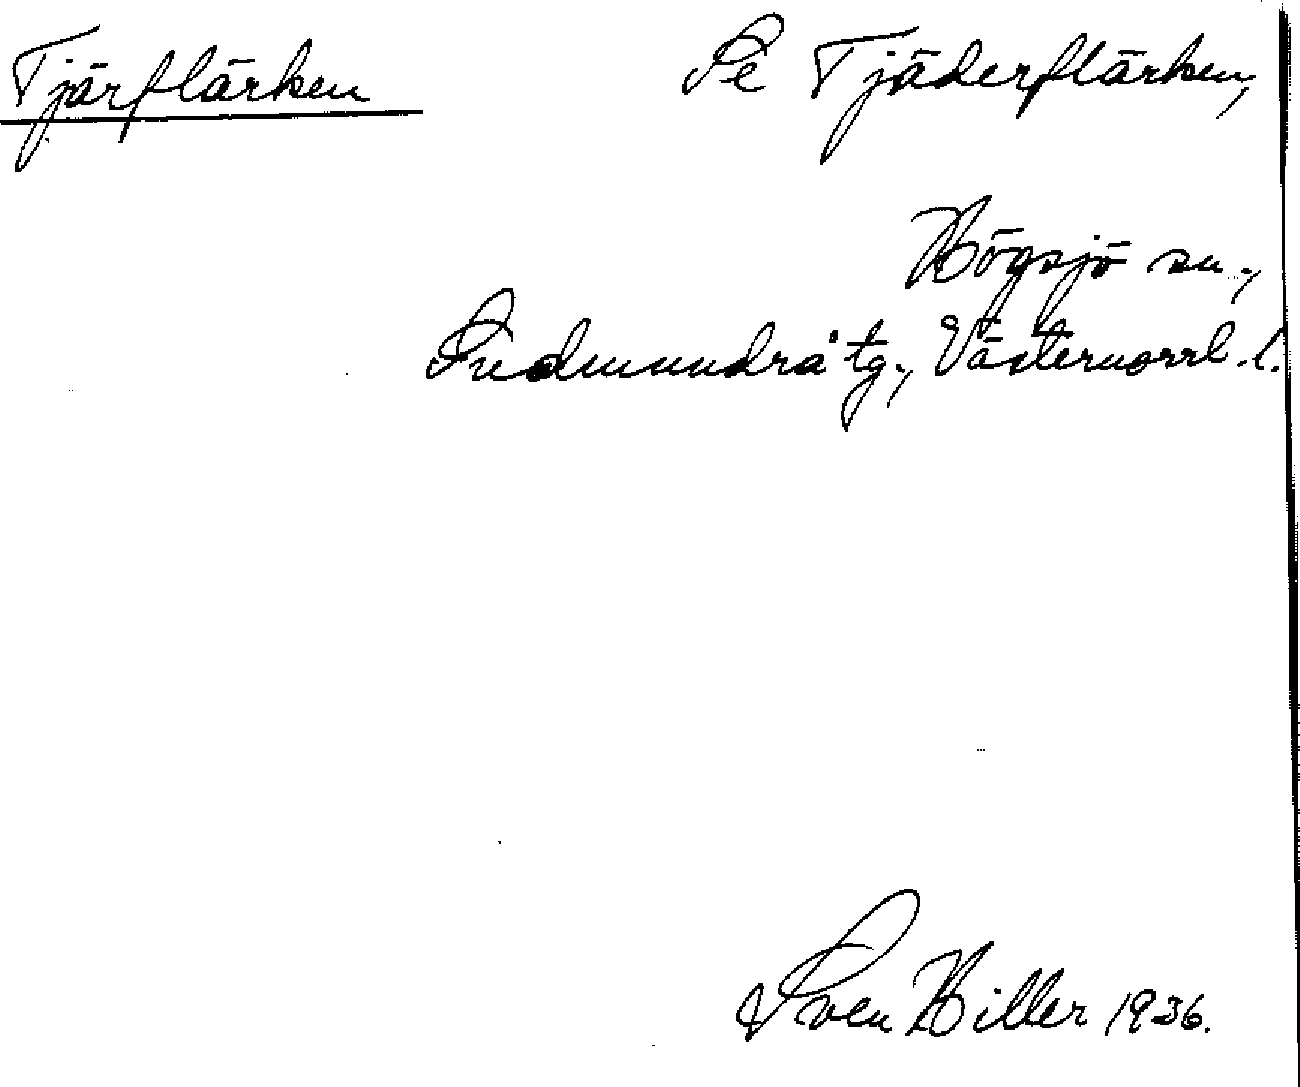 Tjärflärken
Se Tjäderflärken,
Högsjö sn.,
Gudmundrå tg., Västernorrl. l.
Sven Hiller 1936.